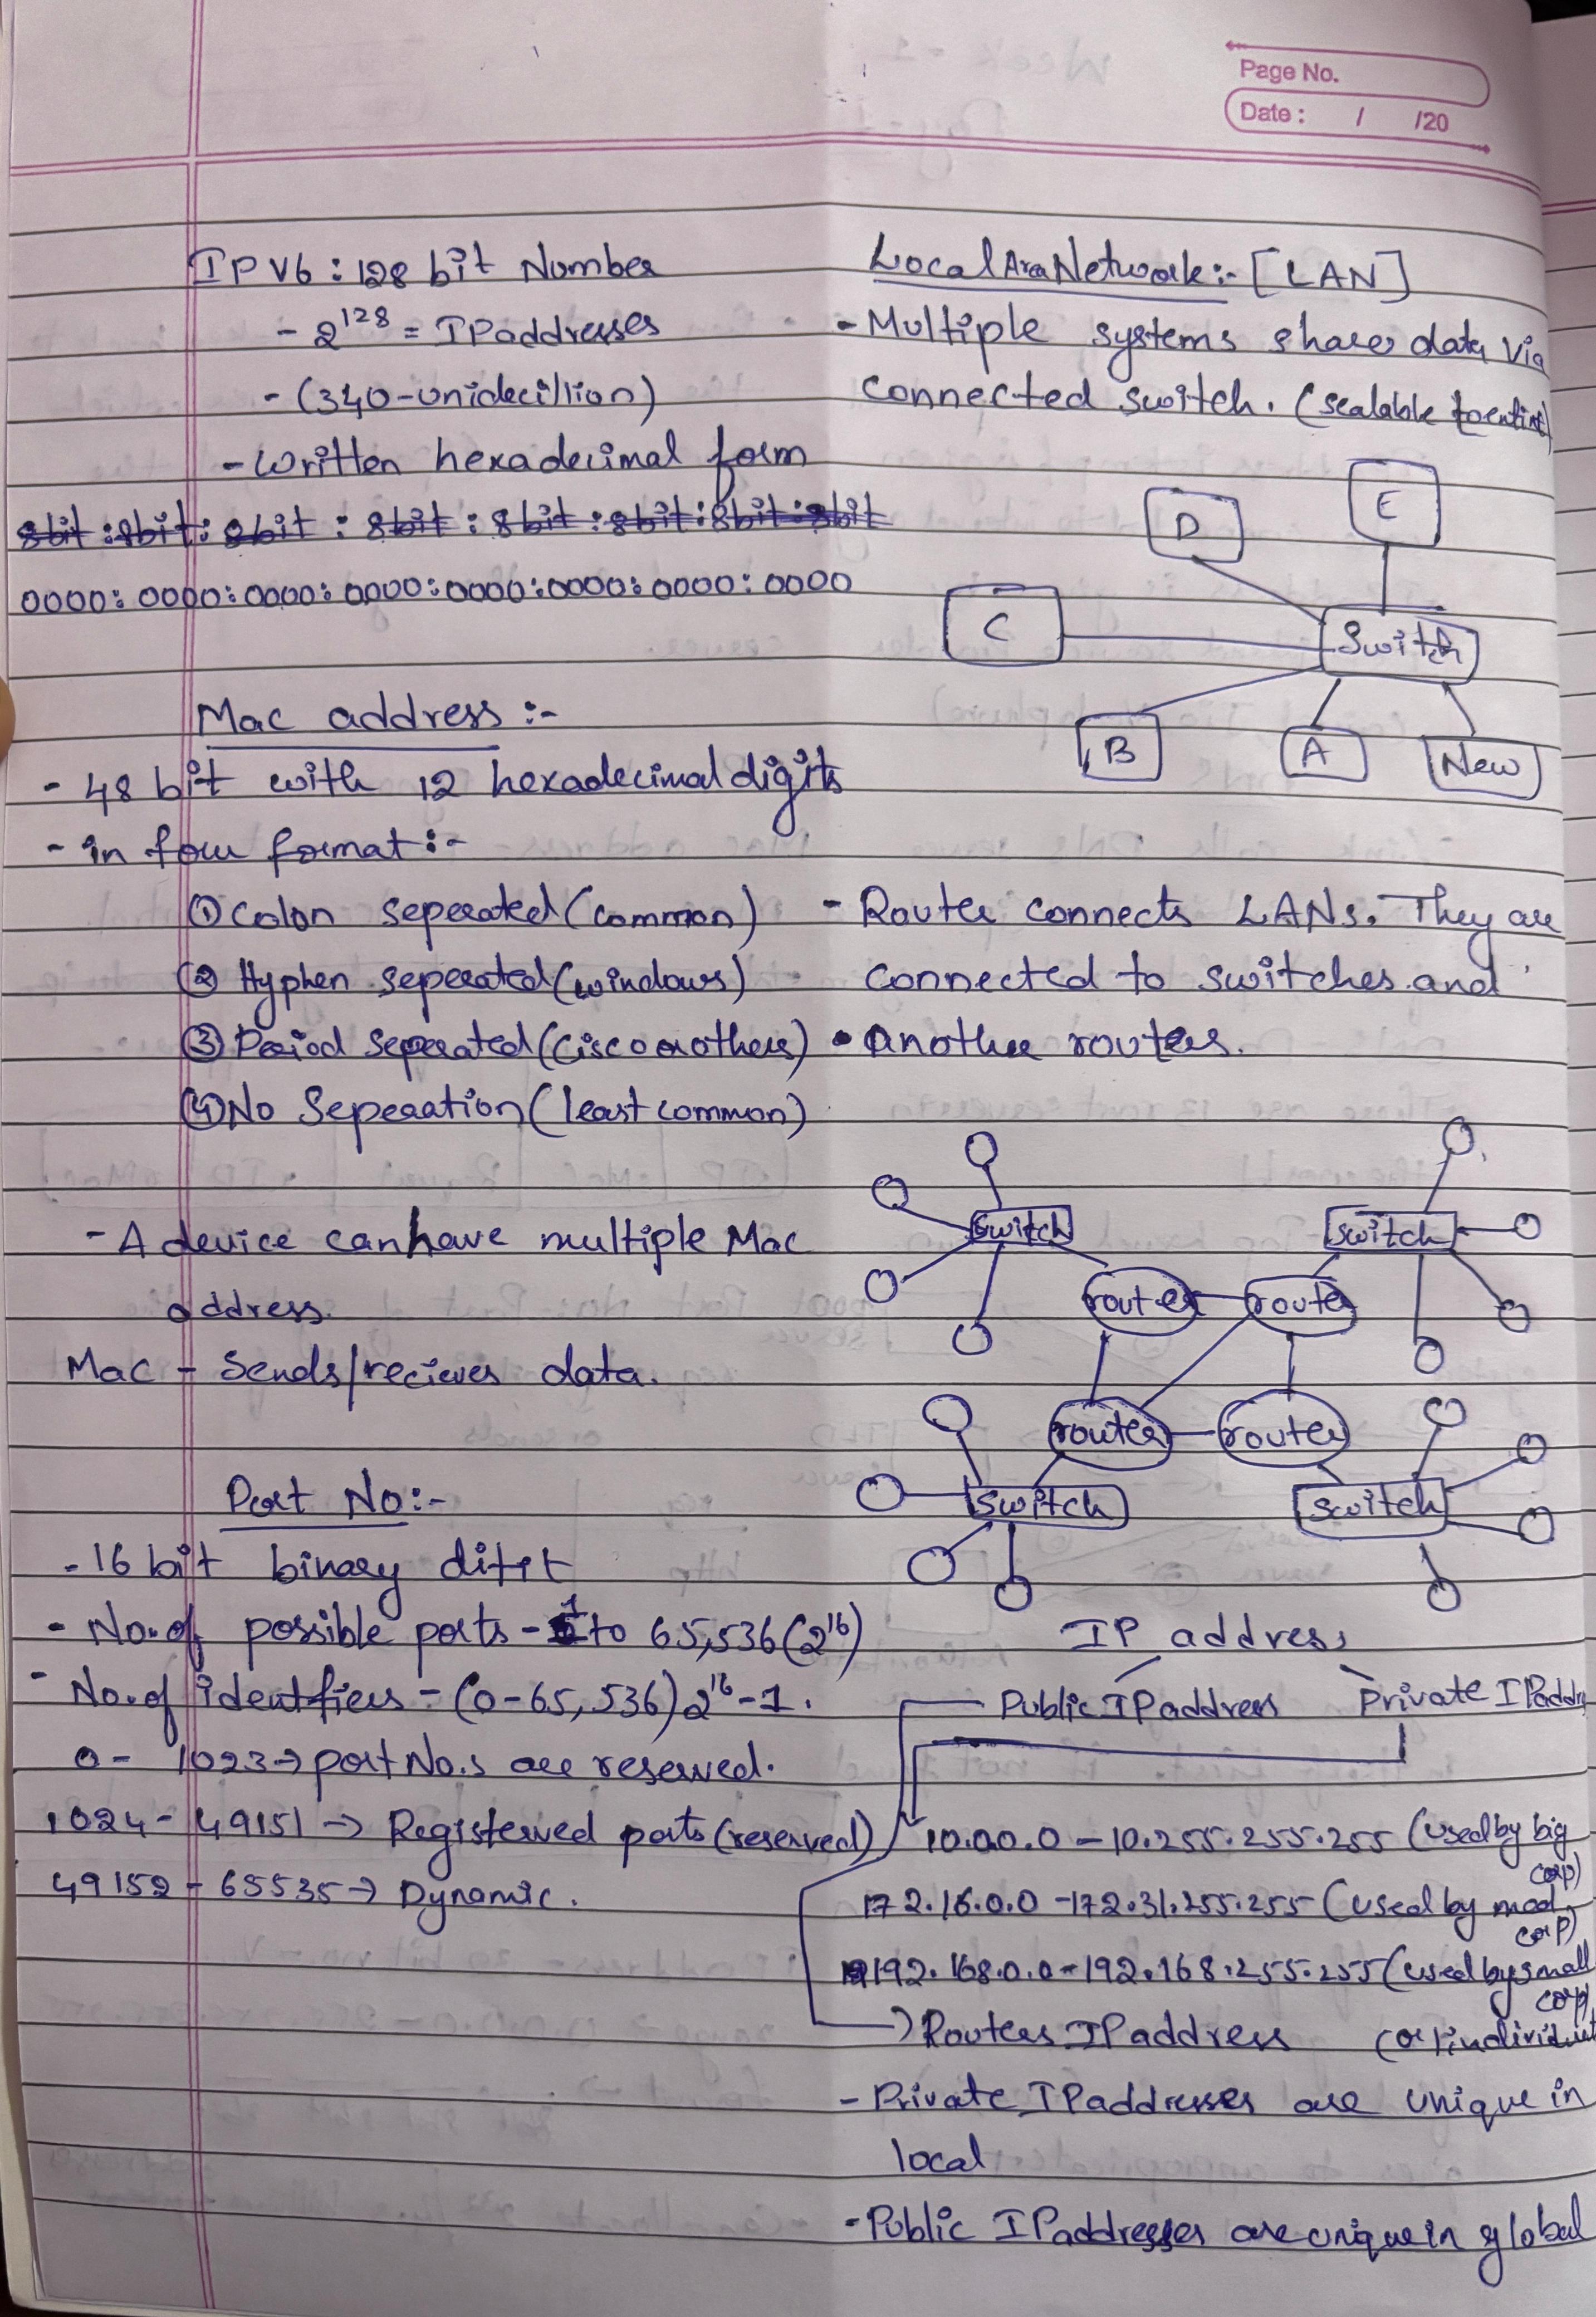 Page No.
Date : / /20
IPV6 : 128 bit Number
- 2^128 = IPaddresses
- (340-unidecillion)
- Written hexadecimal form
8bit : 8bit : 8bit : 8bit : 8bit : 8bit : 8bit : 8bit
0000: 0000: 0000: 0000: 0000: 0000: 0000: 0000
Mac address :-
- 48 bit with 12 hexadecimal digits
- in four format :-
① Colon seperated (common)
② Hyphen seperated (windows)
③ Period seperated (cisco or others)
④ No Seperation (least common)
- A device can have multiple Mac
address.
Mac - Sends/recieves data.
Port No:-
- 16 bit binary
- No. of possible ports - 1 to 65,536 (2^16)
- No. of identfiers - (0-65,536) 2^16-1.
0 - 1023 → port No.s are reserved.
1024 - 49151 → Registerved ports (reserved)
49152 - 65535 → Dynamic.
Local Ara Network :- [LAN]
- Multiple systems share data via
connected switch. (scalable
D
E
C
Switch
B
A
New
- Router connects LANs. They are
connected to switches and
another routers.
switch
switch
router
router
router
router
switch
switch
IP address
Public IP address
Private IP addre
10.0.0.0 - 10.255.255.255 (used by big
corp)
172.16.0.0 - 172.31.255.255 (used by med
corp)
192.168.0.0 - 192.168.255.255 (used by small
corp
→ Routers IP address (or) individu
- Private IP addresses are unique in
local
- Public IP addresses are unique in global